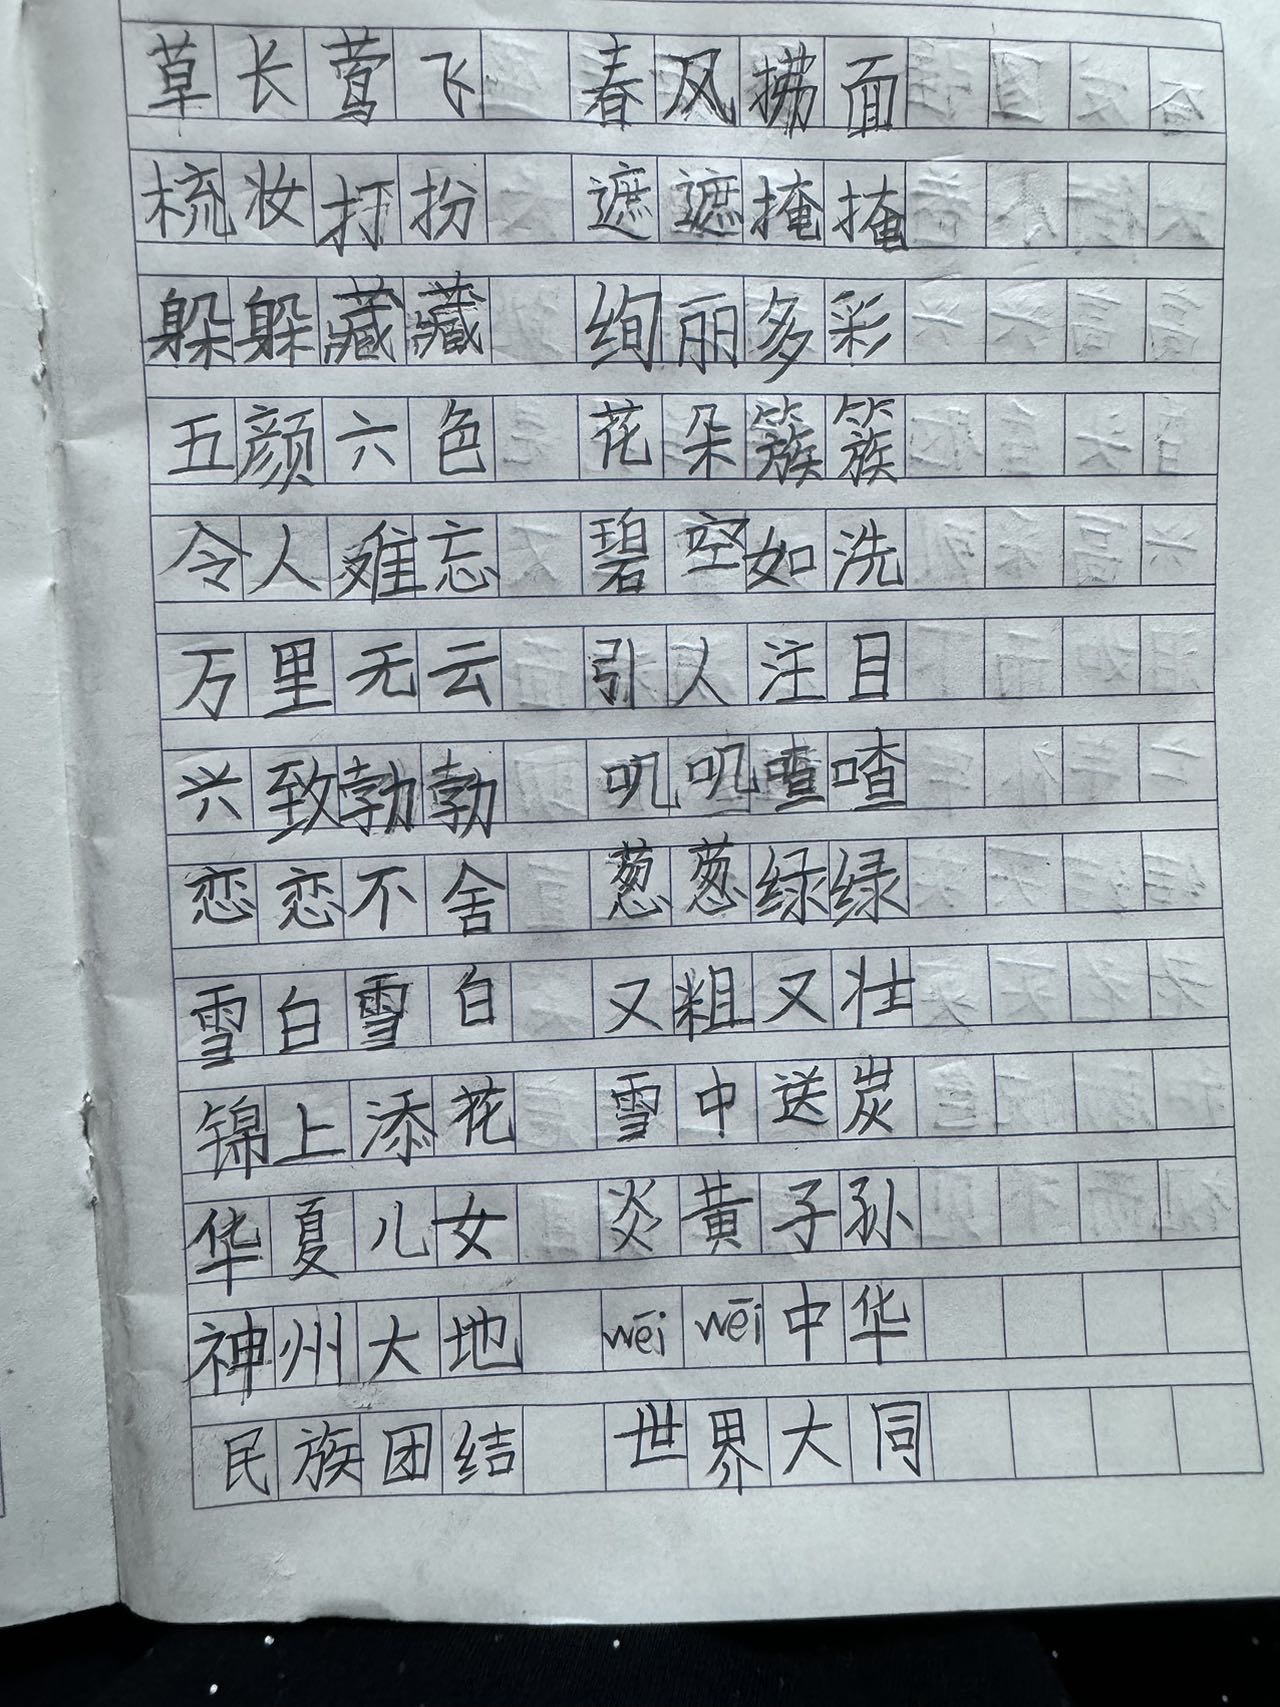 草长莺飞 春风拂面
梳妆打扮 遮遮掩掩
躲躲藏藏 绚丽多彩
五颜六色 花朵簇簇
令人难忘 碧空如洗
万里无云 引人注目
兴致勃勃 叽叽喳喳
恋恋不舍 葱葱绿绿
雪白雪白 又粗又壮
锦上添花 雪中送炭
华夏儿女 炎黄子孙
神州大地 wēi wēi 中华
民族团结 世界大同